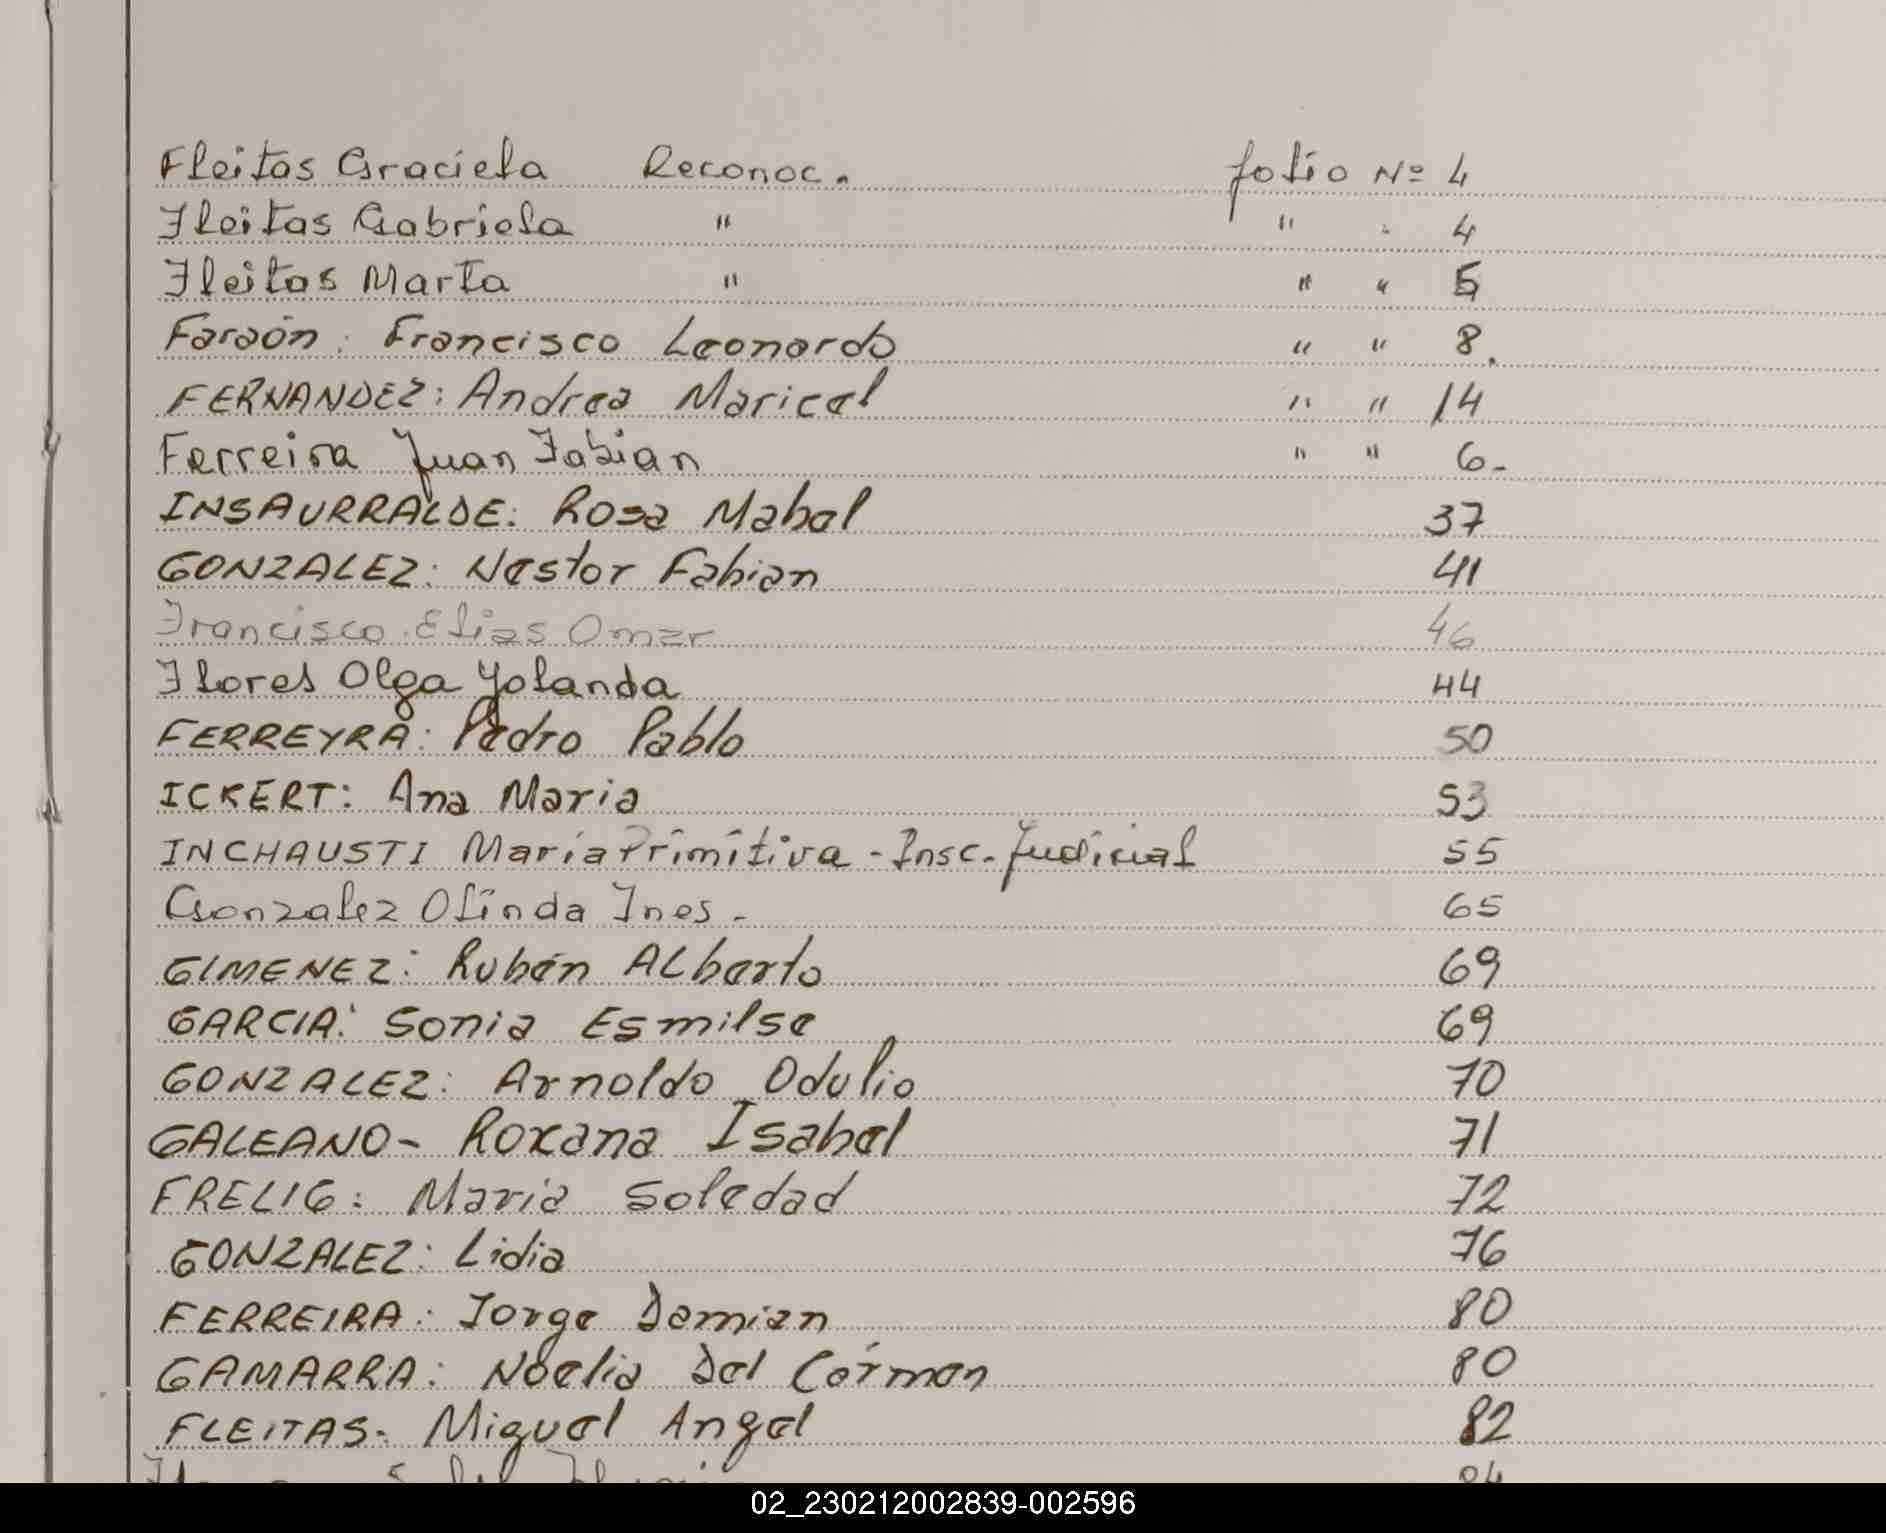 Fleitas Graciela Reconoc. folio Nº 4
Fleitas Gabriela " " " 4
Fleitas Marta " " " 5
Faraón: Francisco Leonardo " " 8.
FERNANDEZ: Andrea Maricel " " 14
Ferreira Juan Fabian " " 6-
INSAURRALDE: Rosa Mabel 37
GONZALEZ: Nestor Fabian 41
Francisco Elias Omar 46
Flores Olga Yolanda 44
FERREYRA: Pedro Pablo 50
ICKERT: Ana Maria 53
INCHAUSTI María Primitiva - Insc. Judicial 55
Gonzalez Olinda Ines - 65
GIMENEZ: Rubén ALberto 69
GARCIA: Sonia Esmilse 69
GONZALEZ: Arnoldo Odulio 70
GALEANO- Roxana Isabel 71
FRELIG: Maria Soledad 72
GONZALEZ: Lidia 76
FERREIRA: Jorge Damian 80
GAMARRA: Noelia Del Cármen 80
FLEITAS- Miguel Angel 82
84
02_230212002839-002596